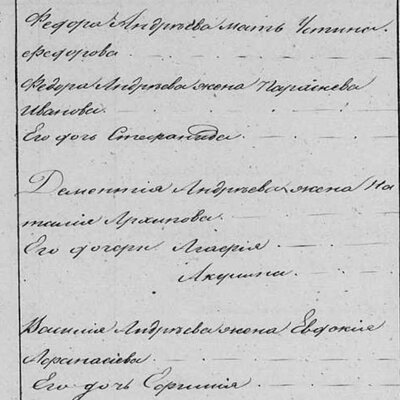 Федора Андрѣева мать Устина
Федорова
Федора Андрѣева жена Параскева
Иванова
Его дочь Стефанида
Дементія Андрѣева жена На
талія Архипова
Его дочери Агафія
Акулина
Василія Андрѣева жена Евдокія
Афанасіева
Его дочь